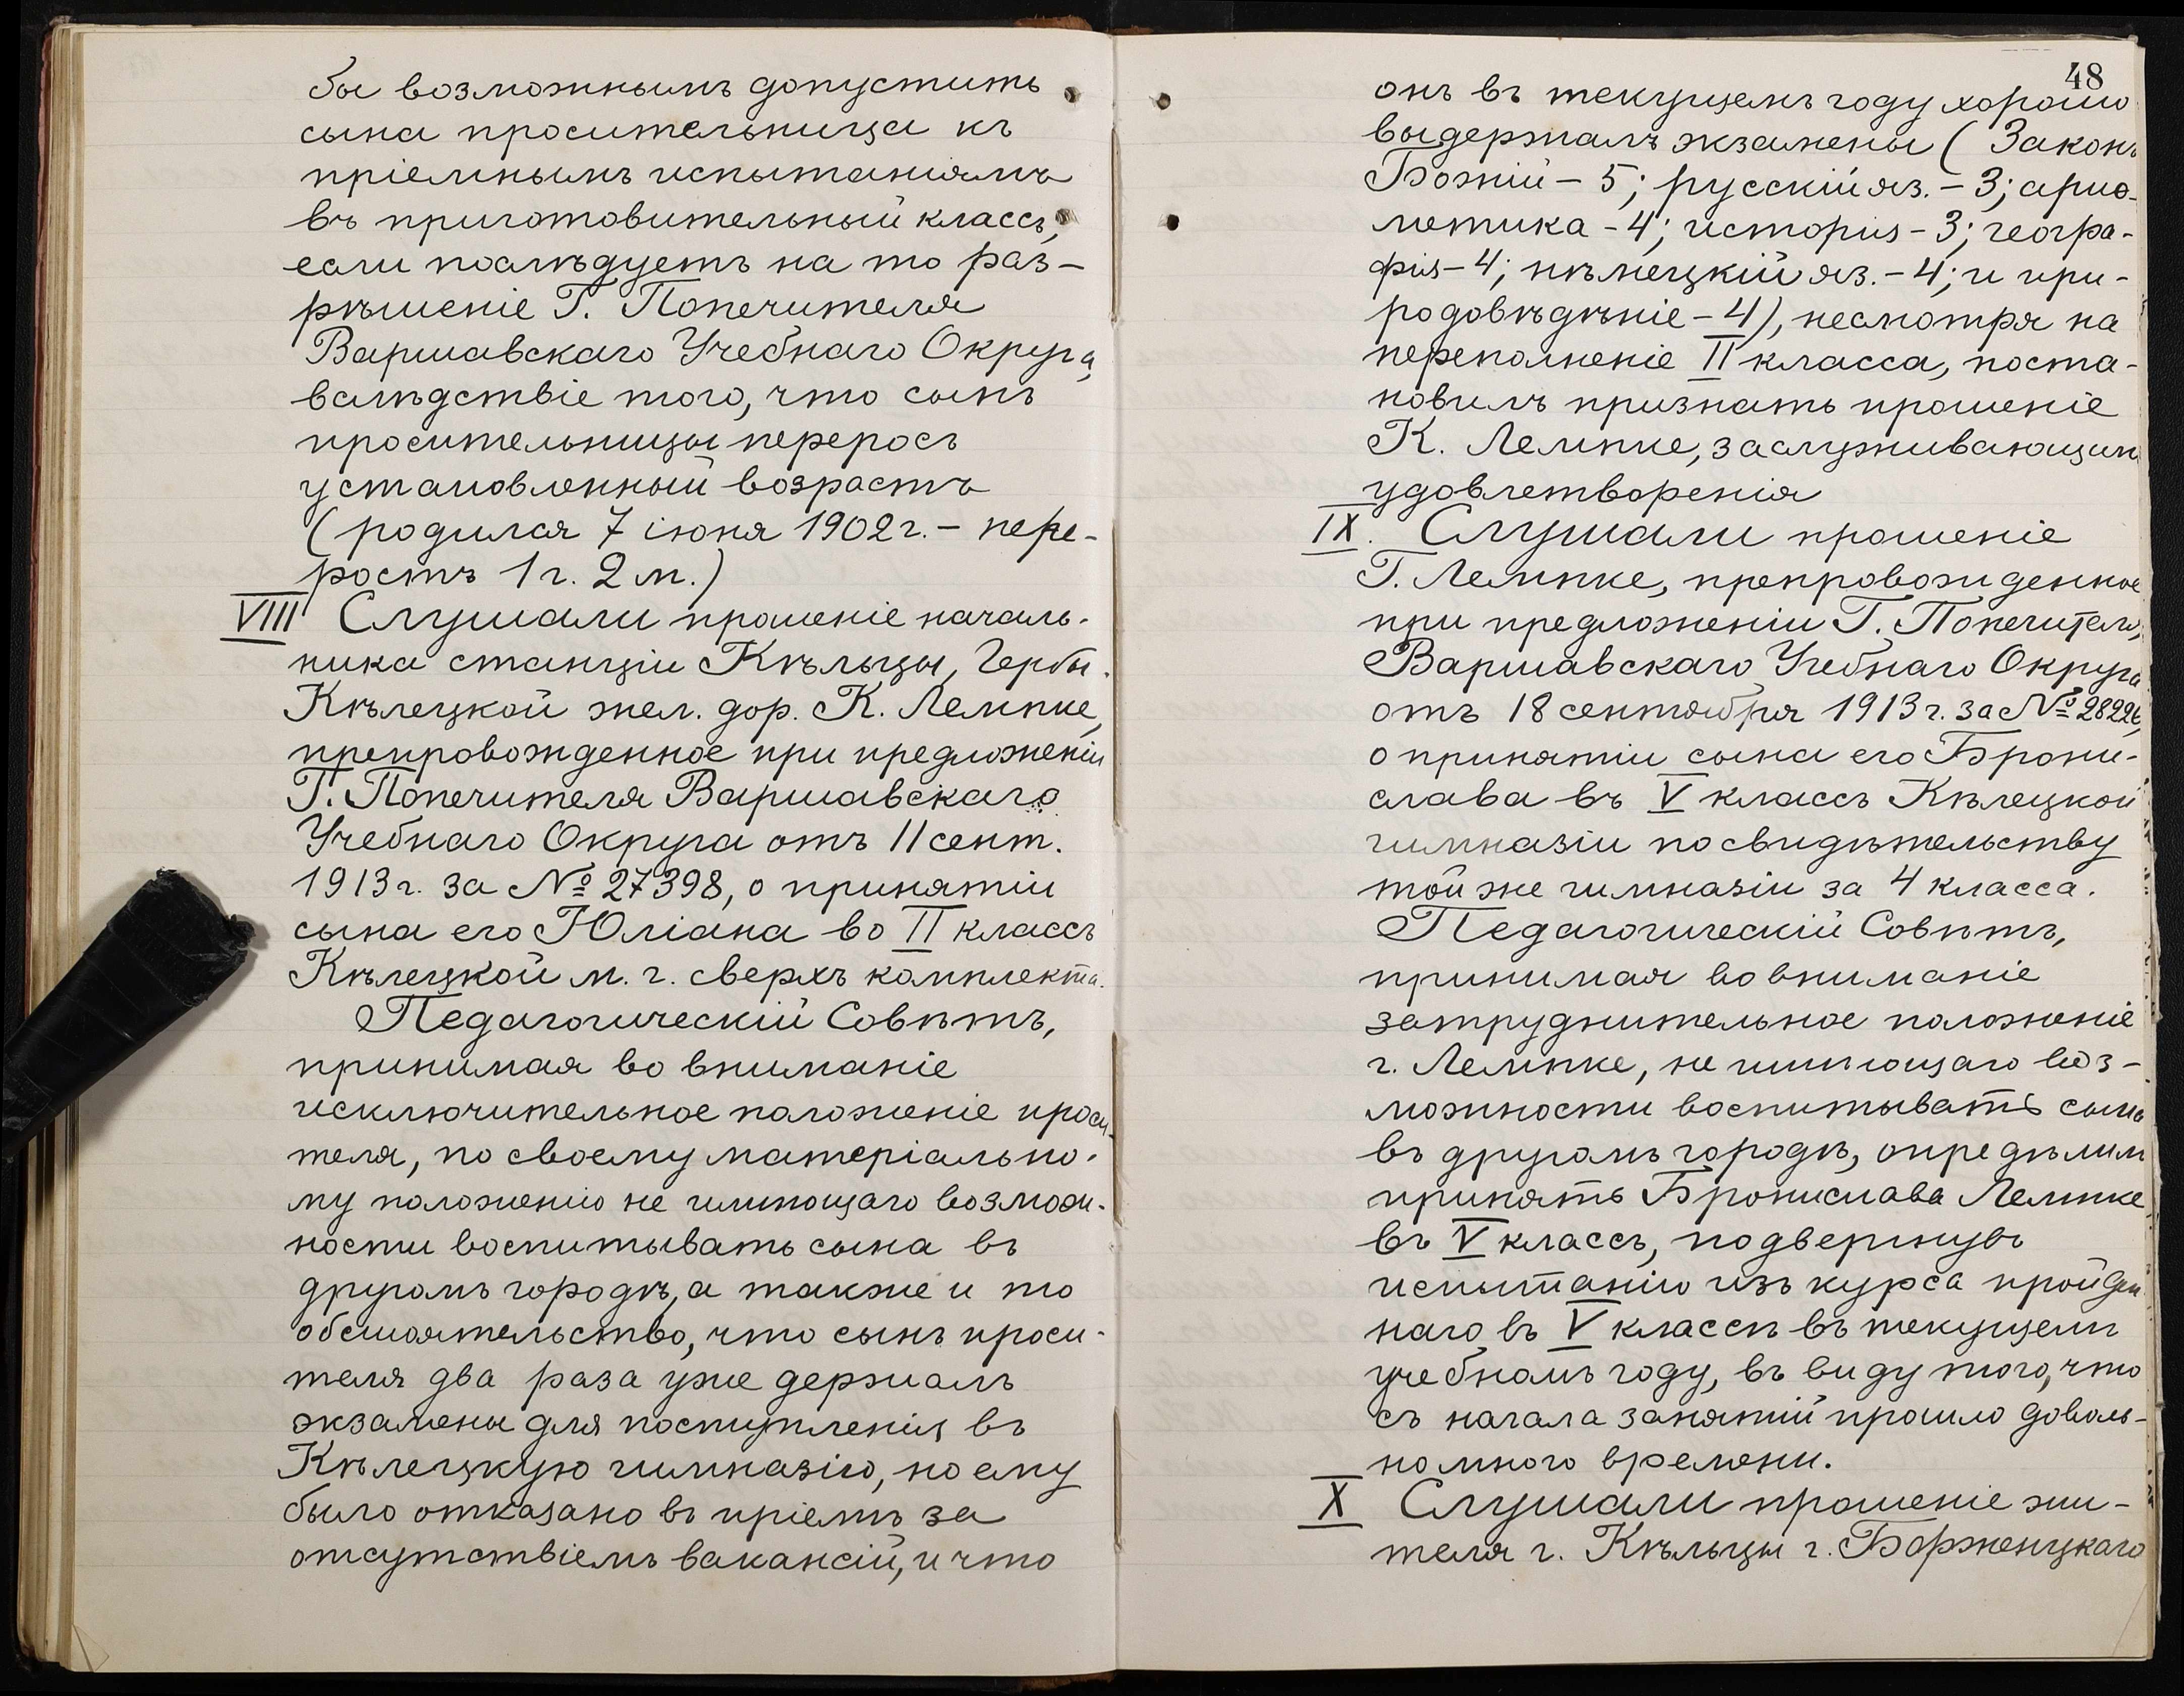 бы возможнымъ допустить
сына просительница къ
пріемнымъ испытаніямъ
въ приготовительный классъ,
если послѣдуетъ на то раз-
рѣшеніе Г. Попечителя
Варшавскаго Учебнаго Округа,
вслѣдствіе того, что сынъ
просительницы переросъ
установленный возрастъ
(родился 7 іюня 1902 г. – пере-
ростъ 1 г. 2 м.)
VIII Слушали прошеніе началь-
ника станціи Кѣльцы, Гербы-
Кѣлецкой жел. дор. К. Лемпке,
препровожденное при предложеніи
Г. Попечителя Варшавскаго
Учебнаго Округа отъ 11 сент.
1913 г. за № 27398, о принятіи
сына его Юліана во II классъ
Кѣлецкой м. г. сверхъ комплекта.
Педагогическій Совѣтъ,
принимая во вниманіе
исключительное положеніе проси-
теля, по своему матеріально-
му положенію не имѣющаго возмож-
ности воспитывать сына въ
другомъ городѣ, а также и то
обстоятельство, что сынъ проси-
теля два раза уже держалъ
экзамены для поступленія въ
Кѣлецкую гимназію, но ему
было отказано въ пріемѣ за
отсутствіемъ вакансій, и что
48
онъ въ текущемъ году хорошо
выдержалъ экзамены (Законъ
Божій – 5; русскій яз. – 3; ариѳ-
метика – 4; исторія – 3; геогра-
фія – 4; нѣмецкій яз. – 4; и при-
родовѣдѣніе – 4), несмотря на
переполненіе II класса, поста-
новилъ признать прошеніе
К. Лемпке, заслуживающимъ
удовлетворенія
IX. Слушали прошеніе
Г. Лемпке, препровожденное
при предложеніи Г. Попечителя,
Варшавскаго Учебнаго Округа
отъ 18 сентября 1913 г. за № 28226,
о принятіи сына его Брони-
слава въ V классъ Кѣлецкой
гимназіи по свидѣтельству
той же гимназіи за 4 класса.
Педагогическій Совѣтъ,
принимая во вниманіе
затруднительное положеніе
г. Лемпке, не имѣющаго воз-
можности воспитывать сына
въ другомъ городѣ, опредѣлилъ
принять Бронислава Лемпке
въ V классъ, подвергнувъ
испытанію изъ курса пройден
наго въ V классѣ въ текущемъ
учебномъ году, въ виду того, что
съ начала занятій прошло доволь-
но много времени.
X Слушали прошеніе жи-
теля г. Кѣльцы г. Борженцкаго